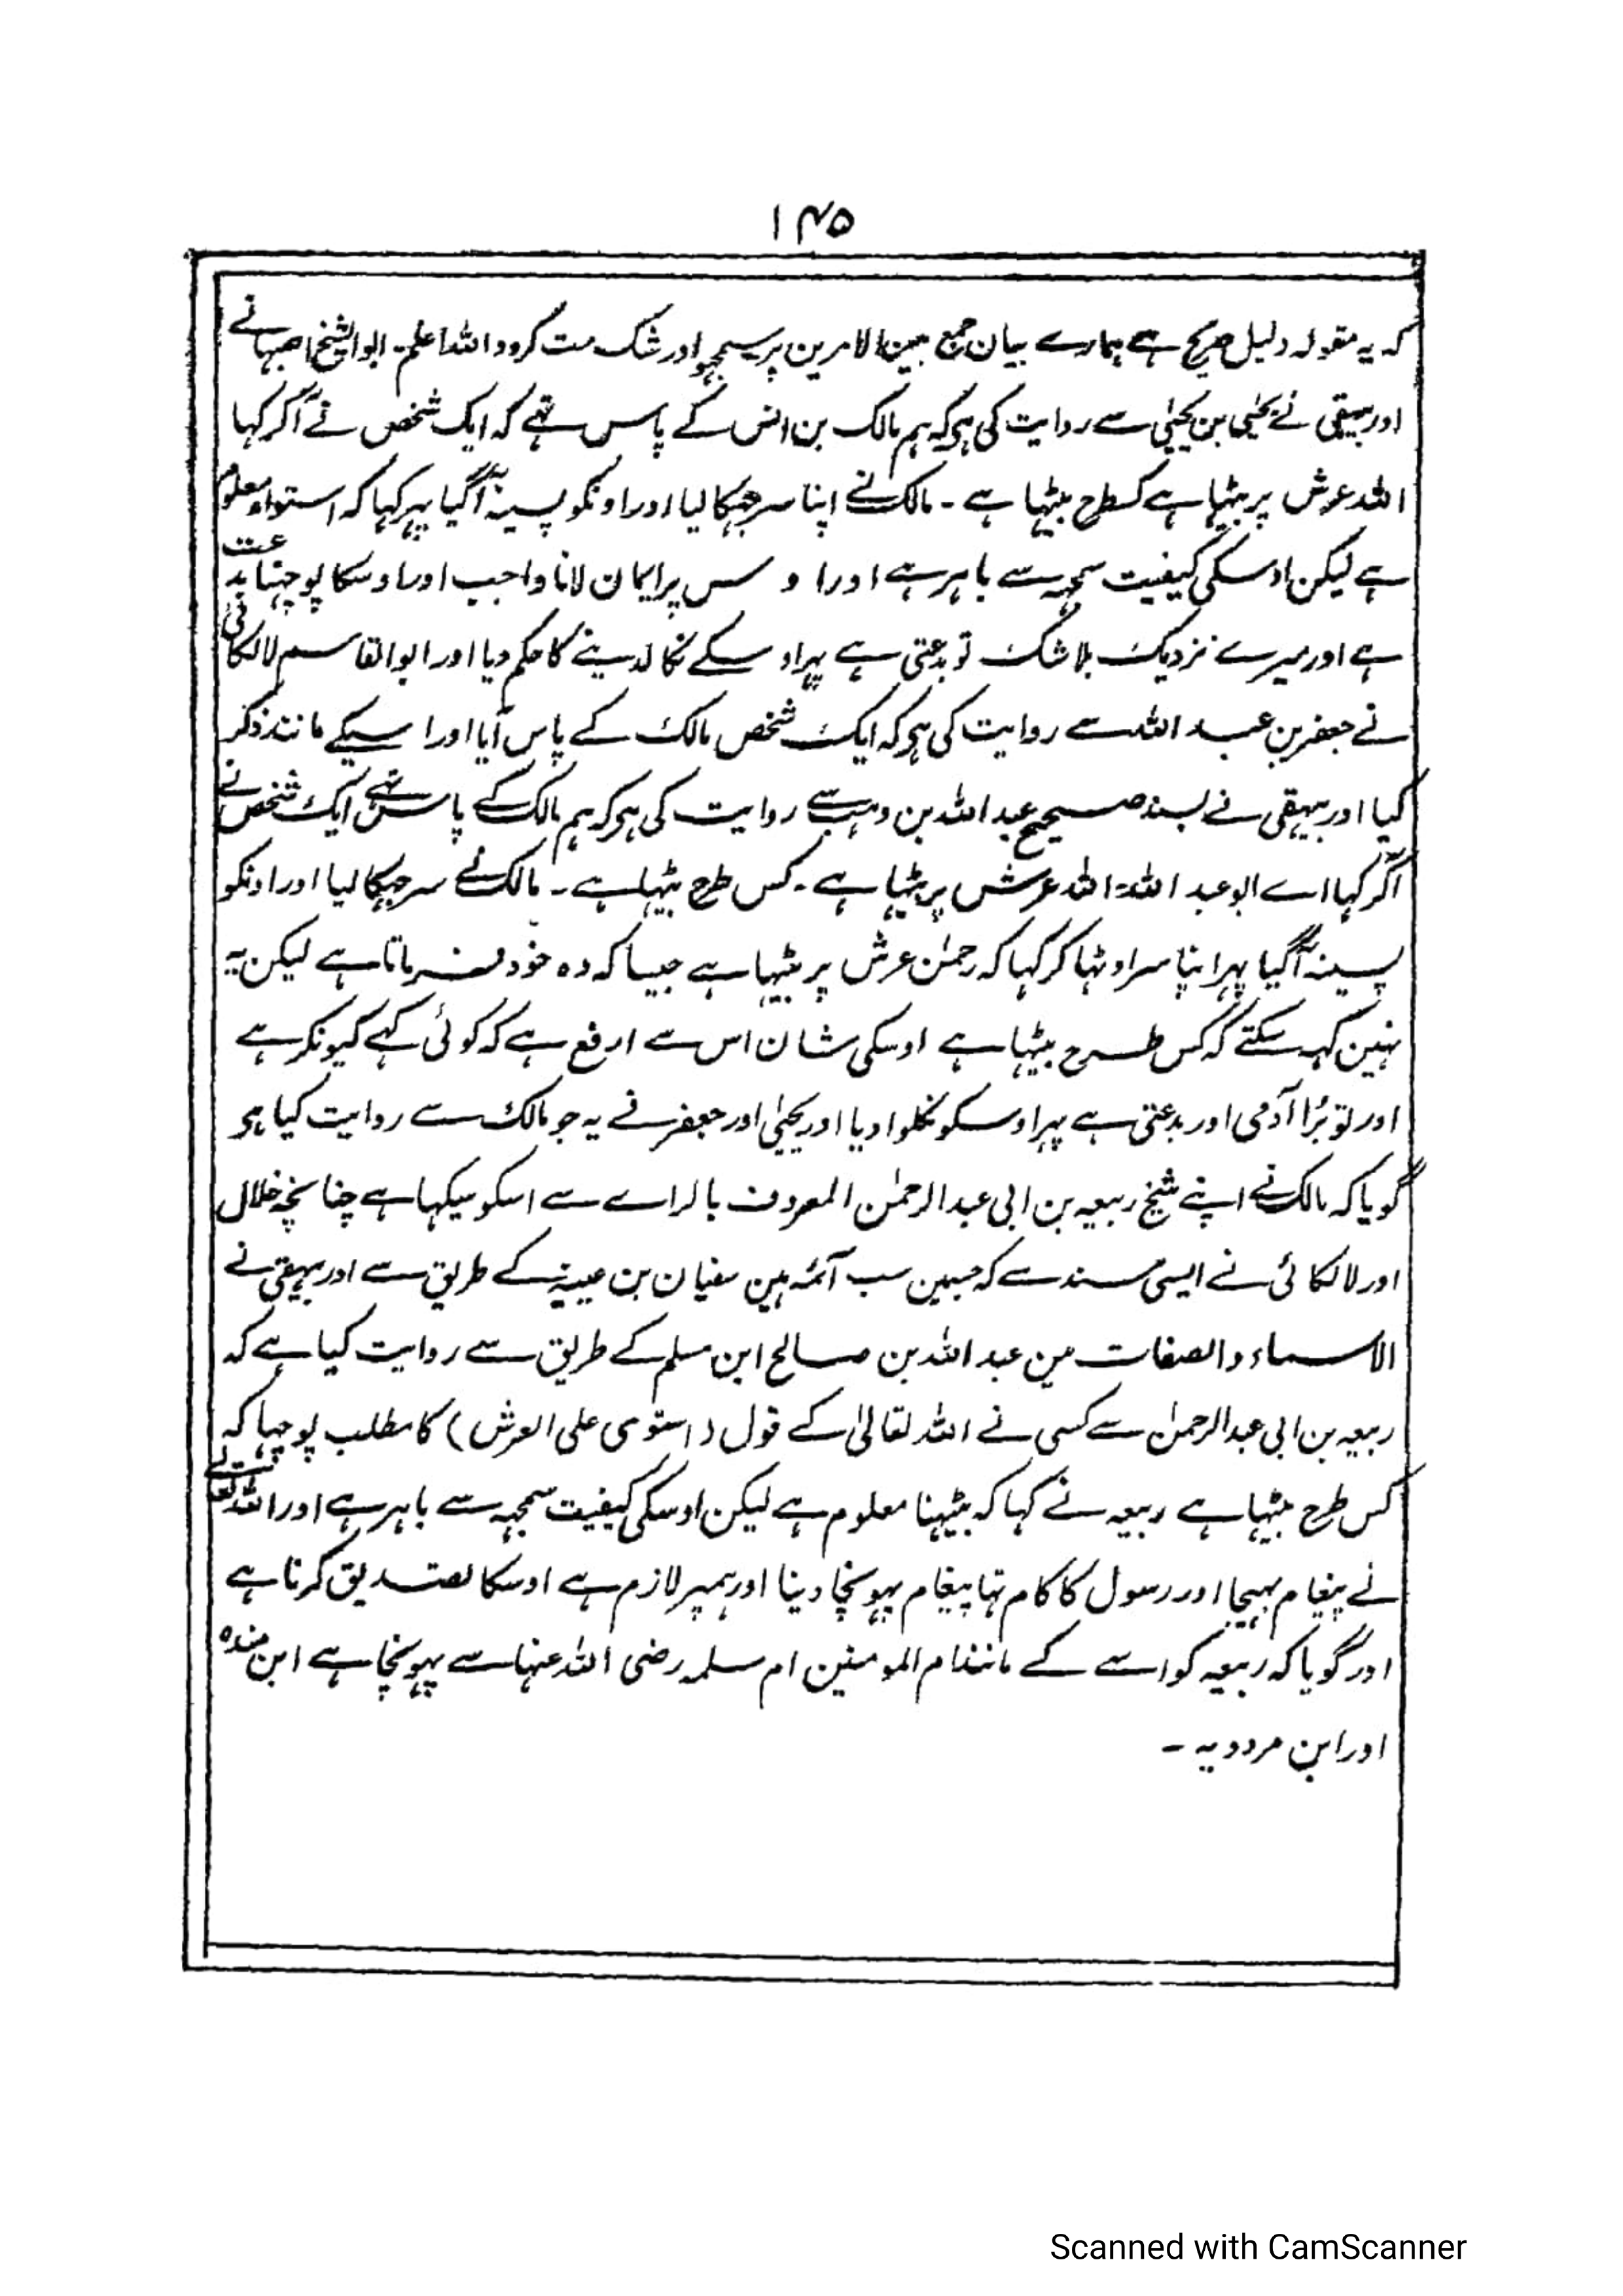 ۱۴۵
کہ یہ مقولہ دلیل صریح ہے ہمارے بیان جمع بین الامرین پر سمجہو اور شک مت کرو واللہ اعلم۔ ابوالشیخ اصبہانے
اور بیہقی نے یحیٰی بن یحیٰی سے روایت کی ہو کہ ہم مالک بن انس کے پاس تہے کہ ایک شخص نے آکر کہا
اللہ عرش پر بیٹہا ہے کسطرح بیٹہا ہے ۔ مالک نے اپنا سر جہکا لیا اور اونکو پسینہ آگیا پہر کہا کہ استواء معلوم
ہے لیکن اوسکی کیفیت سمجہہ سے باہر ہے اور او سس پر ایمان لانا واجب اور اوسکا پوچہنا بدعت
ہے اور میرے نزدیک بلا شک تو بدعتی ہے پہر او سکے نکالدینے کا حکم دیا اور ابوالقاسم لالکائی
نے جعفر بن عبد اللہ سے روایت کی ہو کہ ایک شخص مالک کے پاس آیا اور اسیکے مانند ذکر
کیا اور بیہقی نے بسند صحیح عبد اللہ بن وہب سے روایت کی ہو کہ ہم مالک کے پاس تہے ایک شخص نے
آکر کہا اے ابو عبد اللہ اللہ عرش پر بیٹہا ہے ۔ کس طرح بیٹہا ہے ۔ مالک نے سر جہکا لیا اور اونکو
پسینہ آگیا پہر اپنا سر اوٹہا کر کہا کہ رحمٰن عرش پر بیٹہا ہے جیسا کہ وہ خود فرماتا ہے لیکن یہ
نہین کہہ سکتے کہ کس طرح بیٹہا ہے اوسکی شان اس سے ارفع ہے کہ کوئی کہے کیونکر ہے
اور تو بُرا آدمی اور بدعتی ہے پہر اوسکو نکلوا دیا اور یحیٰی اور جعفر نے یہ جو مالک سے روایت کیا ہو
گویا کہ مالک نے اپنے شیخ ربیعہ بن ابی عبد الرحمٰن المعروف بالراے سے اسکو سیکہا ہے چنانچہ خلال
اور لالکائی نے ایسی سند سے کہ جسمین سب آئمہ ہین سفیان بن عیینہ کے طریق سے اور بیہقی نے
الاسماء والصفات مین عبد اللہ بن صالح ابن مسلم کے طریق سے روایت کیا ہے کہ
ربیعہ بن ابی عبد الرحمٰن سے کسی نے اللہ تعالیٰ کے قول (استویٰ علی العرش) کا مطلب پوچہا کہ
کس طرح بیٹہا ہے ربیعہ نے کہا کہ بیٹہنا معلوم ہے لیکن اوسکی کیفیت سمجہہ سے باہر ہے اور اللہ تعالے
نے پیغام بہیجا اور رسول کا کام تہا پیغام پہونچا دینا اور ہمپر لازم ہے اوسکا تصدیق کرنا ہے
اور گویا کہ ربیعہ کو اسے کے مانند ام المومنین ام سلمہ رضی اللہ عنہا سے پہونچا ہے ابن مندہ
اور ابن مردویہ ۔
Scanned with CamScanner